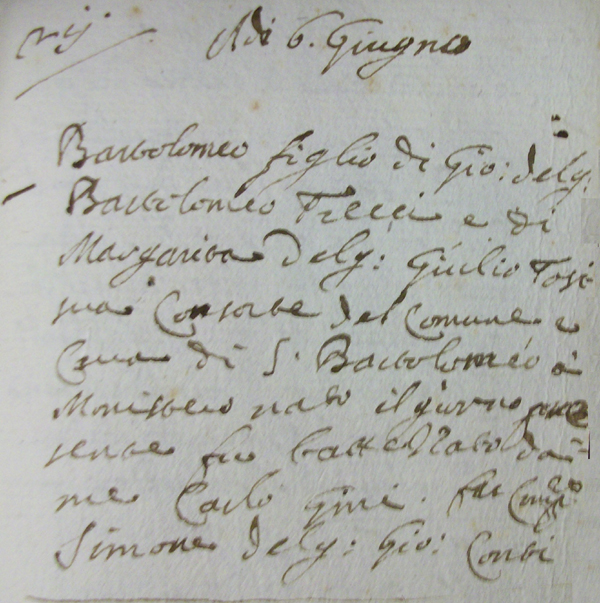 Adi 6. Giugno
Bartolomeo figlio di Gio: delq:
Bartolomeo e di
Margarita delq: Giulio Tosi
sua Consorte del Comune e
Cura di S. Bartolomeo à
Monistero nato il giorno pre
sente fu battezzato da
me Carlo Gini. fu Comp.
Simone delq: Gio: Conti